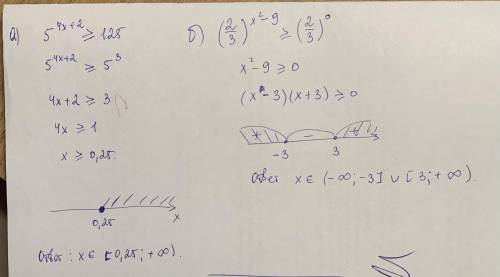 а) 5^{4x+2} ⩾ 125
5^{4x+2} ⩾ 5^3
4x+2 ⩾ 3
4x ⩾ 1
x ⩾ 0,25.
0,25 x
Ответ: x ∈ [0,25; +∞).
б) (2/3)^{x^2-9} ⩾ (2/3)^0
x^2-9 ⩾ 0
(x-3)(x+3) ⩾ 0
+ - +
-3 3
Ответ x ∈ (-∞; -3] ∪ [3; +∞).